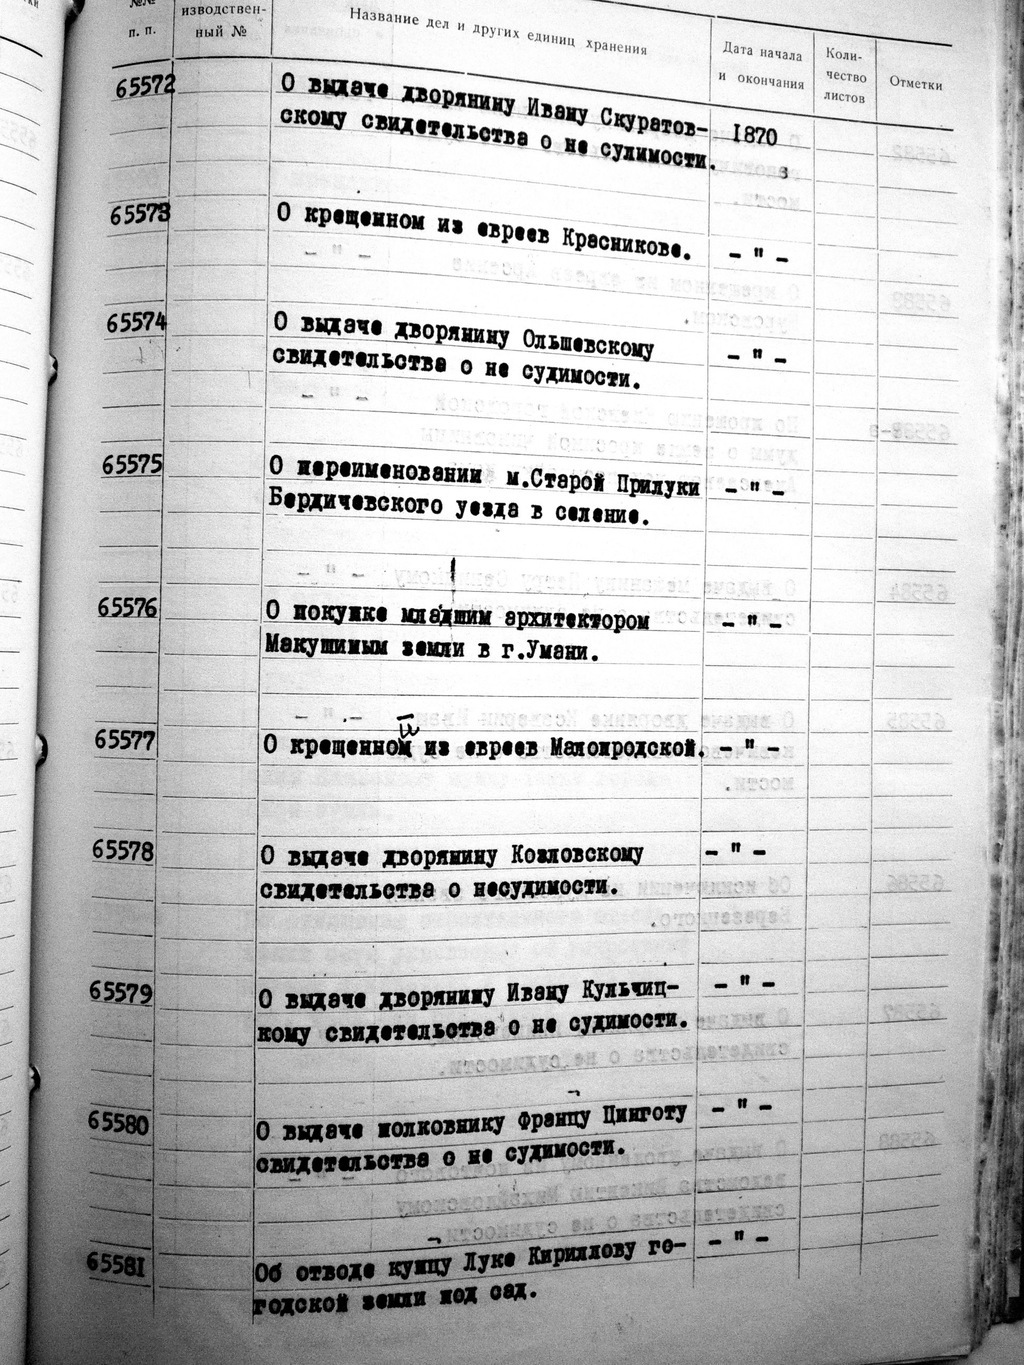 №№
п. п.
изводствен-
ный №
Название дел и других единиц хранения
Дата начала
и окончания
Коли-
чество
листов
Отметки
65572 О выдаче дворянину Ивану Скуратов- 1870
скому свидетельства о не сулимости. в
65573 О крещенном из евреев Красникове. - " -
65574 О выдаче дворянину Ольшевскому - " -
свидетельства о не судимости.
65575 О переименовании м.Старой Прилуки - " -
Бердичевского уезда в селение.
65576 О покупке младшим архитектором - " -
Макушимым земли в г.Умани.
65577 О крещенной из евреев Малоиродской. - " -
65578 О выдаче дворянину Козловскому - " -
свидетельства о несудимости.
65579 О выдаче дворянину Ивану Кульчиц- - " -
кому свидетельства о не судимости.
65580 О выдаче полковнику Францу Цинготу - " -
свидетельства о не судимости.
65581 Об отводе купцу Луке Кириллову го- - " -
годской земли под сад.